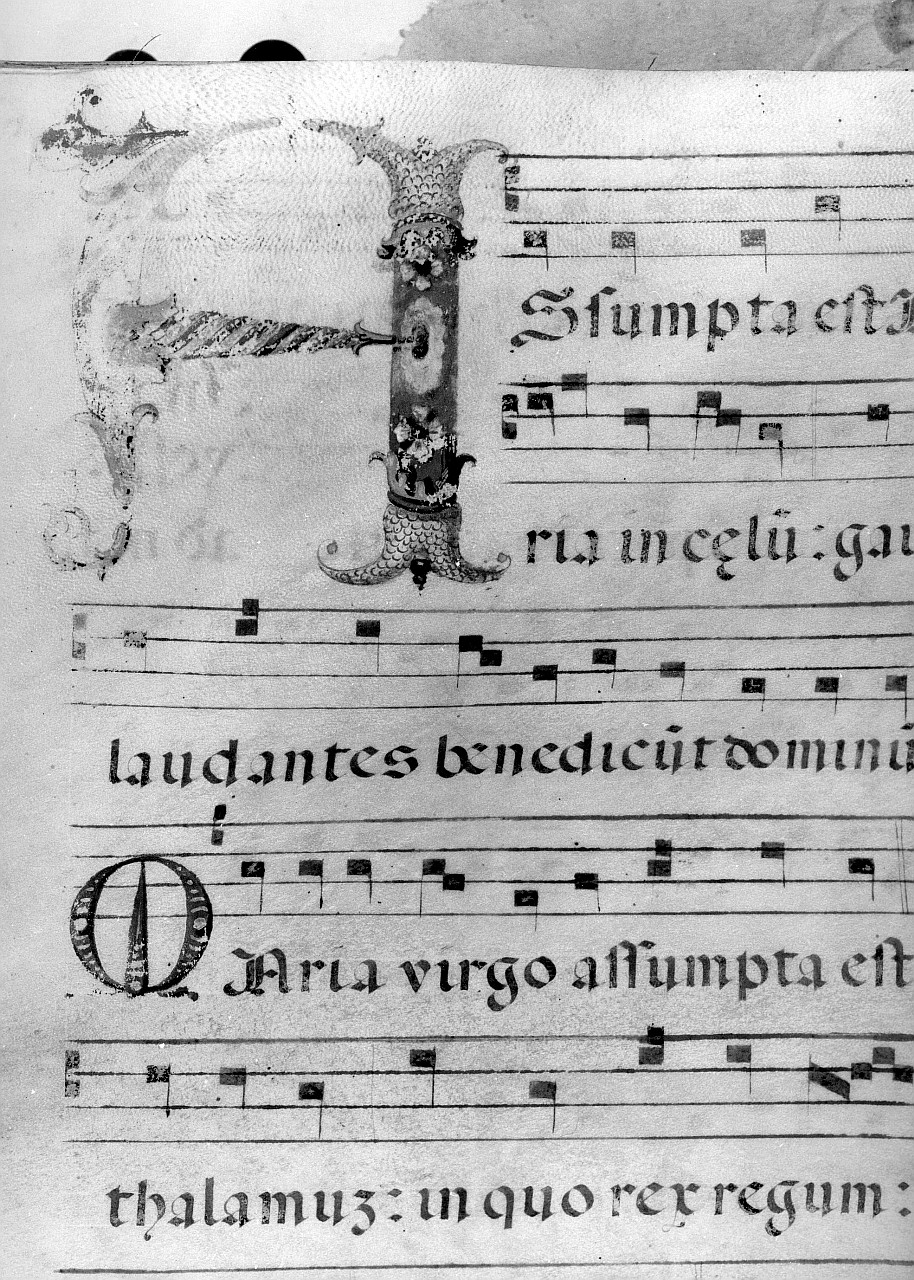 ASsumpta est M
ria in cęlū: gau
laudantes benedicūt dominū
MAria virgo assumpta est
thalamuz: in quo rex regum: